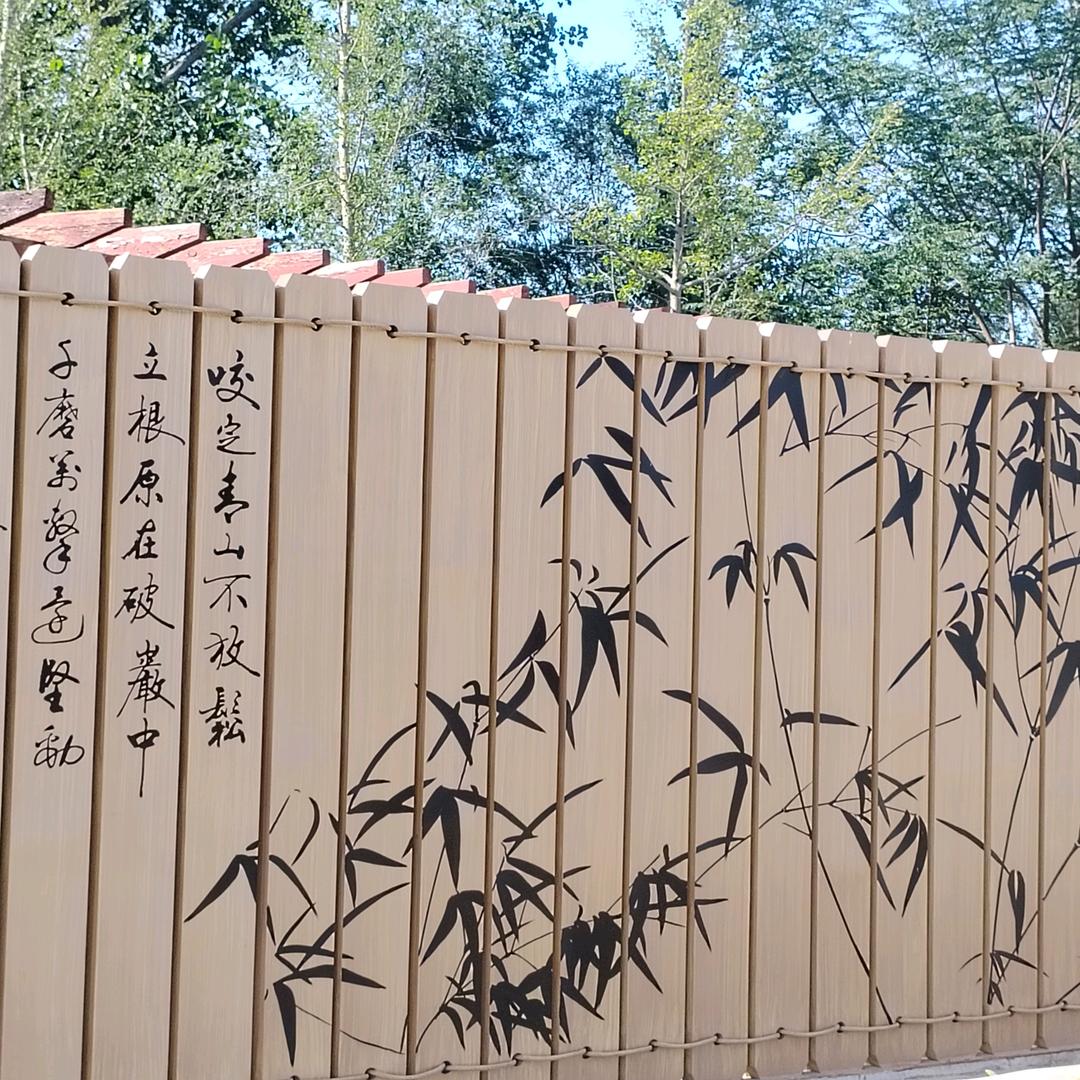 咬定青山不放鬆
立根原在破巖中
千磨萬擊還堅勁